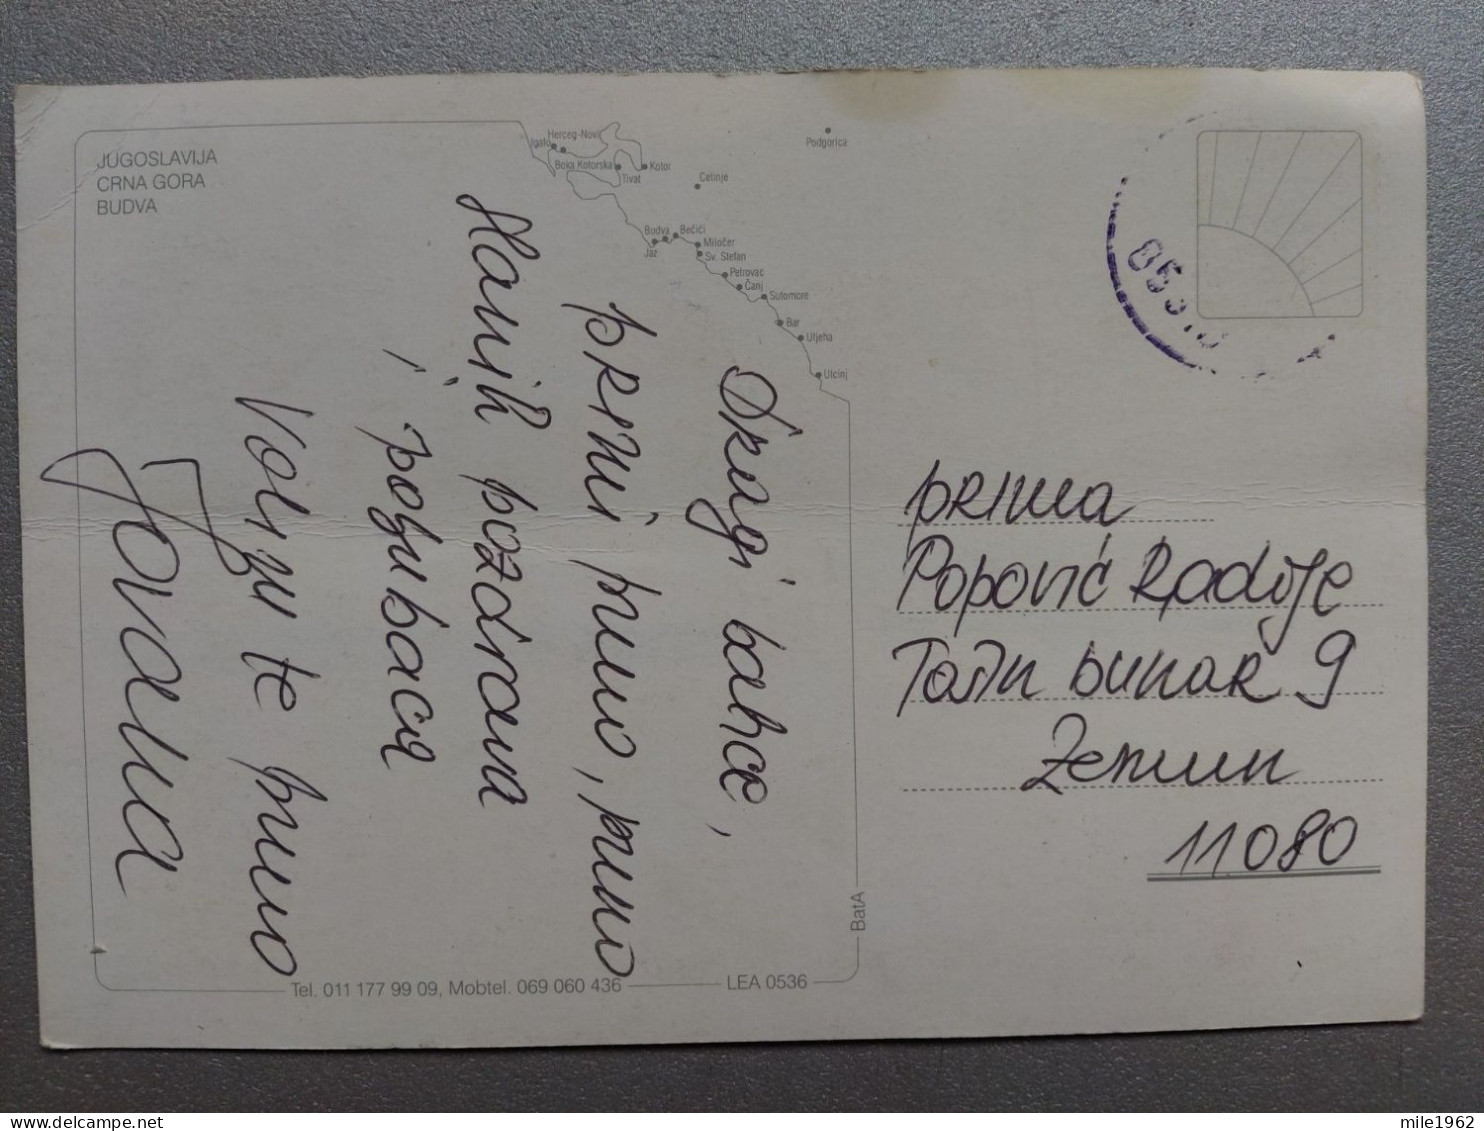 JUGOSLAVIJA
CRNA GORA
BUDVA
Herceg-Novi
Igalo
Boka Kotorska
Kotor
Tivat
Cetinje
Podgorica
Budva
Bečići
Jaz
Miločer
Sv. Stefan
Petrovac
Čanj
Sutomore
Bar
Utjeha
Ulcinj
Dragi babo,
primi puno, puno
slanih pozdrava
i poljubaca
Volju te puno
Jovana
prima
Popović Radoje
Tošin bunar 9
Zemun
11080
BatA
Tel. 011 177 99 09, Mobtel. 069 060 436
LEA 0536
mile1962